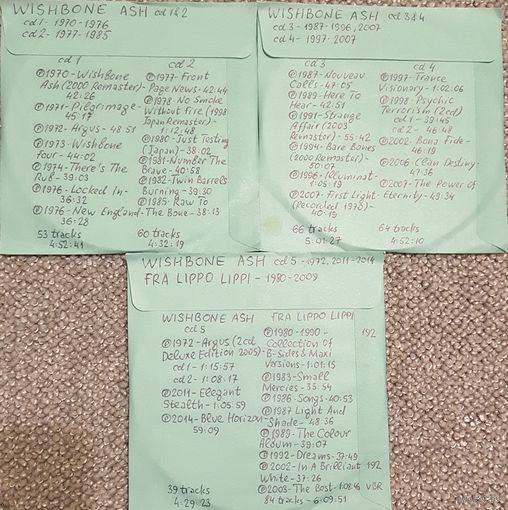 WISHBONE ASH cd 1&2
cd1 - 1970-1976
cd2 - 1977-1985
cd 1
℗1970-Wishbone
Ash (2000 Remaster)-
42:26
℗1971-Pilgrimage-
45:17
℗1972-Argus-48:51
℗1973-Wishbone
Four-44:02
℗1974-There's The
Rub-39:03
℗1976-Locked In-
36:32
℗1976-New England-
36:28
53 tracks
4:52:41
cd 2
℗1977-Front
Page News-42:44
℗1978-No Smoke
Without Fire (1998
Japan Remaster)-
1:12:48
℗1980-Just Testing
(Japan)-38:02
℗1981-Number The
Brave-40:58
℗1982-Twin Barrels
Burning-39:30
℗1985-Raw To
The Bone-38:13
60 tracks
4:32:19
WISHBONE ASH cd 3&4
cd 3-1987-1996, 2007
cd 4-1997-2007
cd 3
℗1987-Nouveau
Calls-47:05
℗1989-Here To
Hear-42:51
℗1991-Strange
Affair (2003
Remaster)-55:42
℗1994-Bare Bones
(2000 Remaster)-
50:07
℗1996-Illuminati-
1:05:19
℗2007-First Light-
(Recorded 1970)-
40:19
66 tracks
5:01:27
cd 4
℗1997-Trance
Visionary-1:02:06
℗1998-Psychic
Terrorism (2cd)
cd1-39:45
cd2-46:48
℗2002-Bona Fide-
46:19
℗2006-Clan Destiny-
47:36
℗2007-The Power of
Eternity-49:34
64 tracks
4:52:10
WISHBONE ASH cd 5-1972, 2011-2014
FRA LIPPO LIPPI-1980-2009
WISHBONE ASH
cd 5
℗1972-Argus (2cd
Deluxe Edition 2005)-
cd1-1:15:57
cd2-1:08:17
℗2011-Elegant
Stealth-1:05:59
℗2014-Blue Horizon-
59:09
39 tracks
4:29:23
FRA LIPPO LIPPI
℗1980-1990- 192
Collection of
B-Sides & Maxi
Versions-1:01:15
℗1983-Small
Mercies-35:54
℗1986 Songs-40:53
℗1987 Light And
Shade-48:36
℗1989-The Colour
Album-39:07
℗1992-Dreams-37:49
℗2002-In A Brilliant 192
White-37:26
℗2003-The Best-1:08:46 VBR
84 tracks-6:09:51